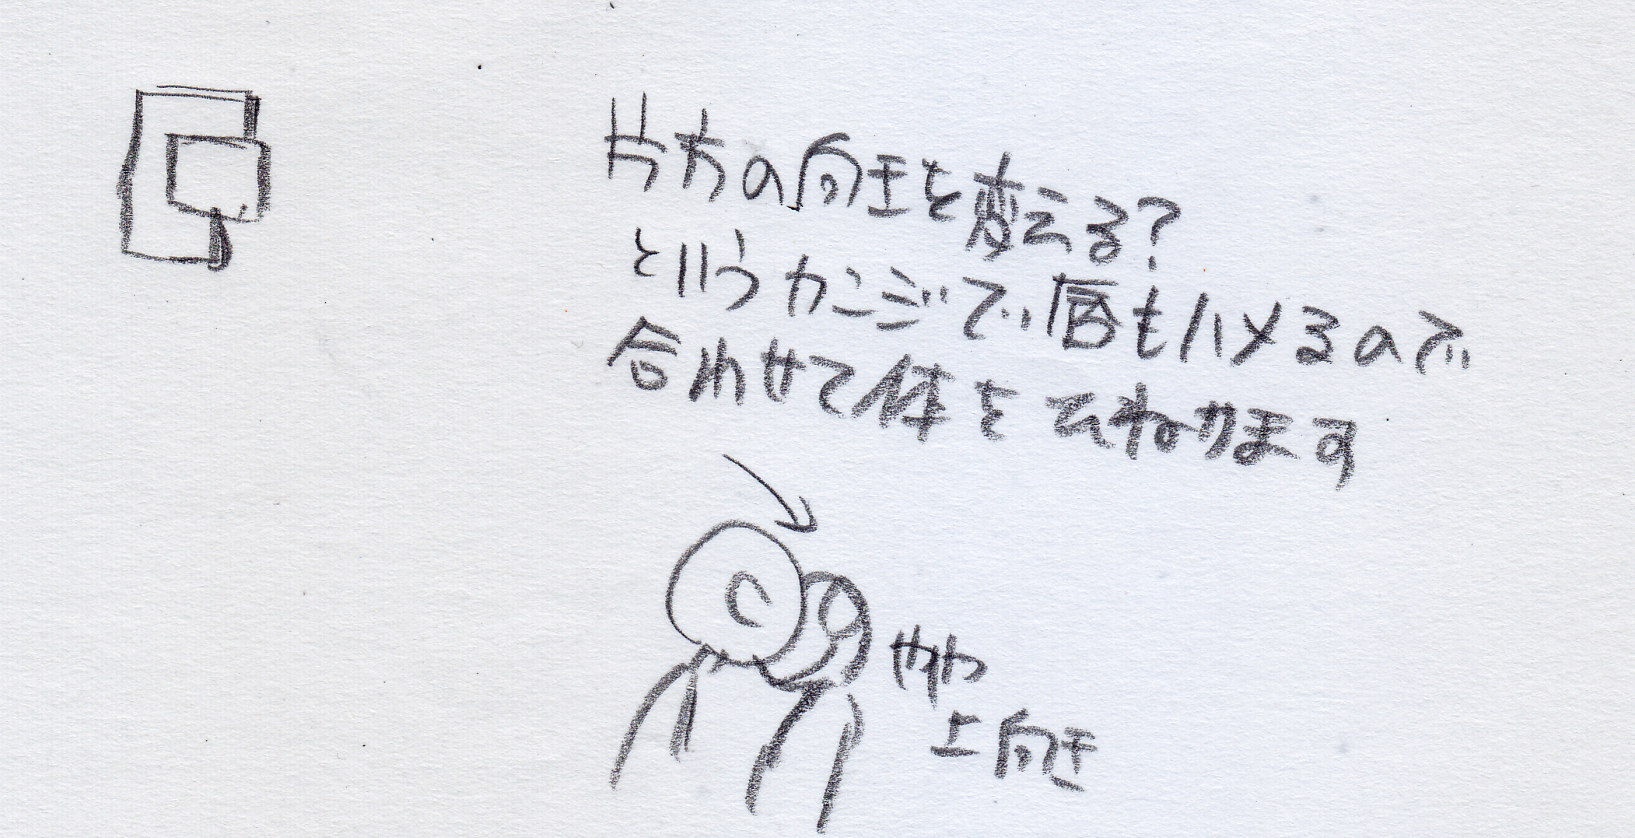 片方の向きを変える?
というカンジで、唇もハメるので
合わせて体をひねります
やや
上向き